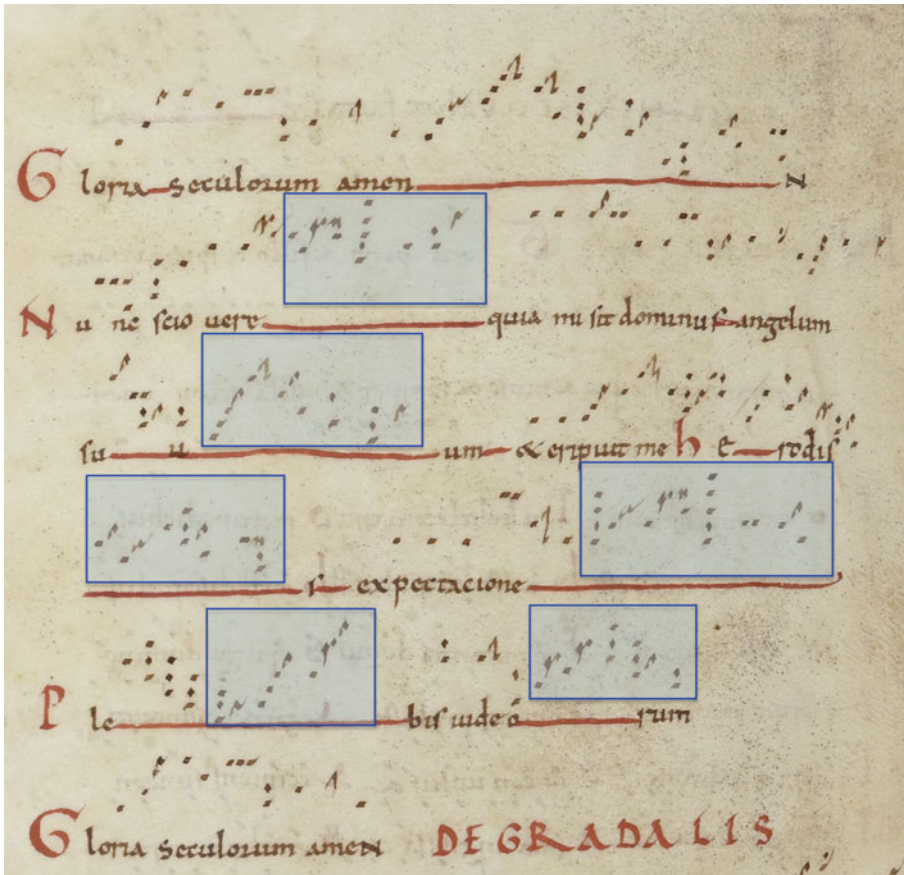 Gloria seculorum amen
Nu nc scio uere quia misit dominus angelum
su u um & eripuit me h E rodis
s expectacione
Ple bis iudeo rum
Gloria seculorum ameN DE GRADALIS